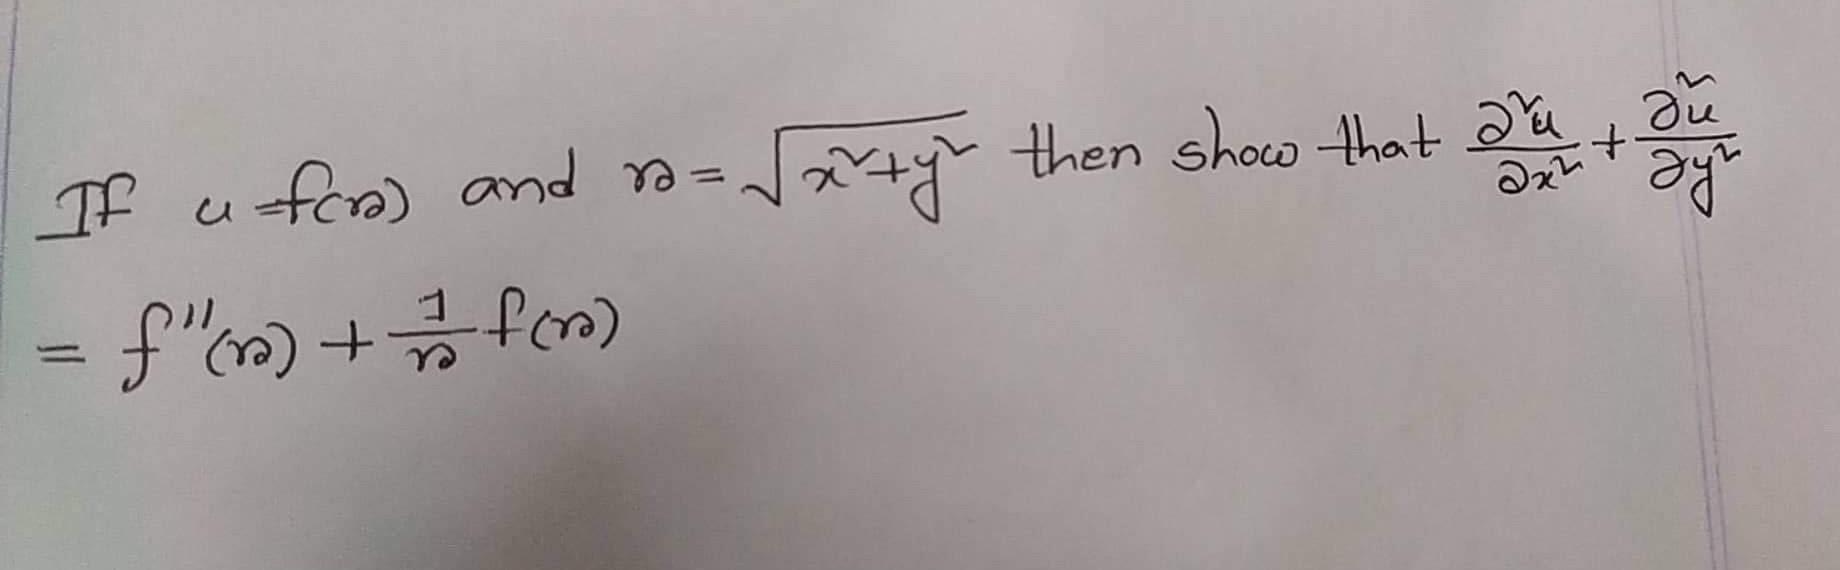 If u=f(r) and r=√(x²+y²) then show that ∂²u/∂x² + ∂²u/∂y²
= f''(r) + 1/r f(r)